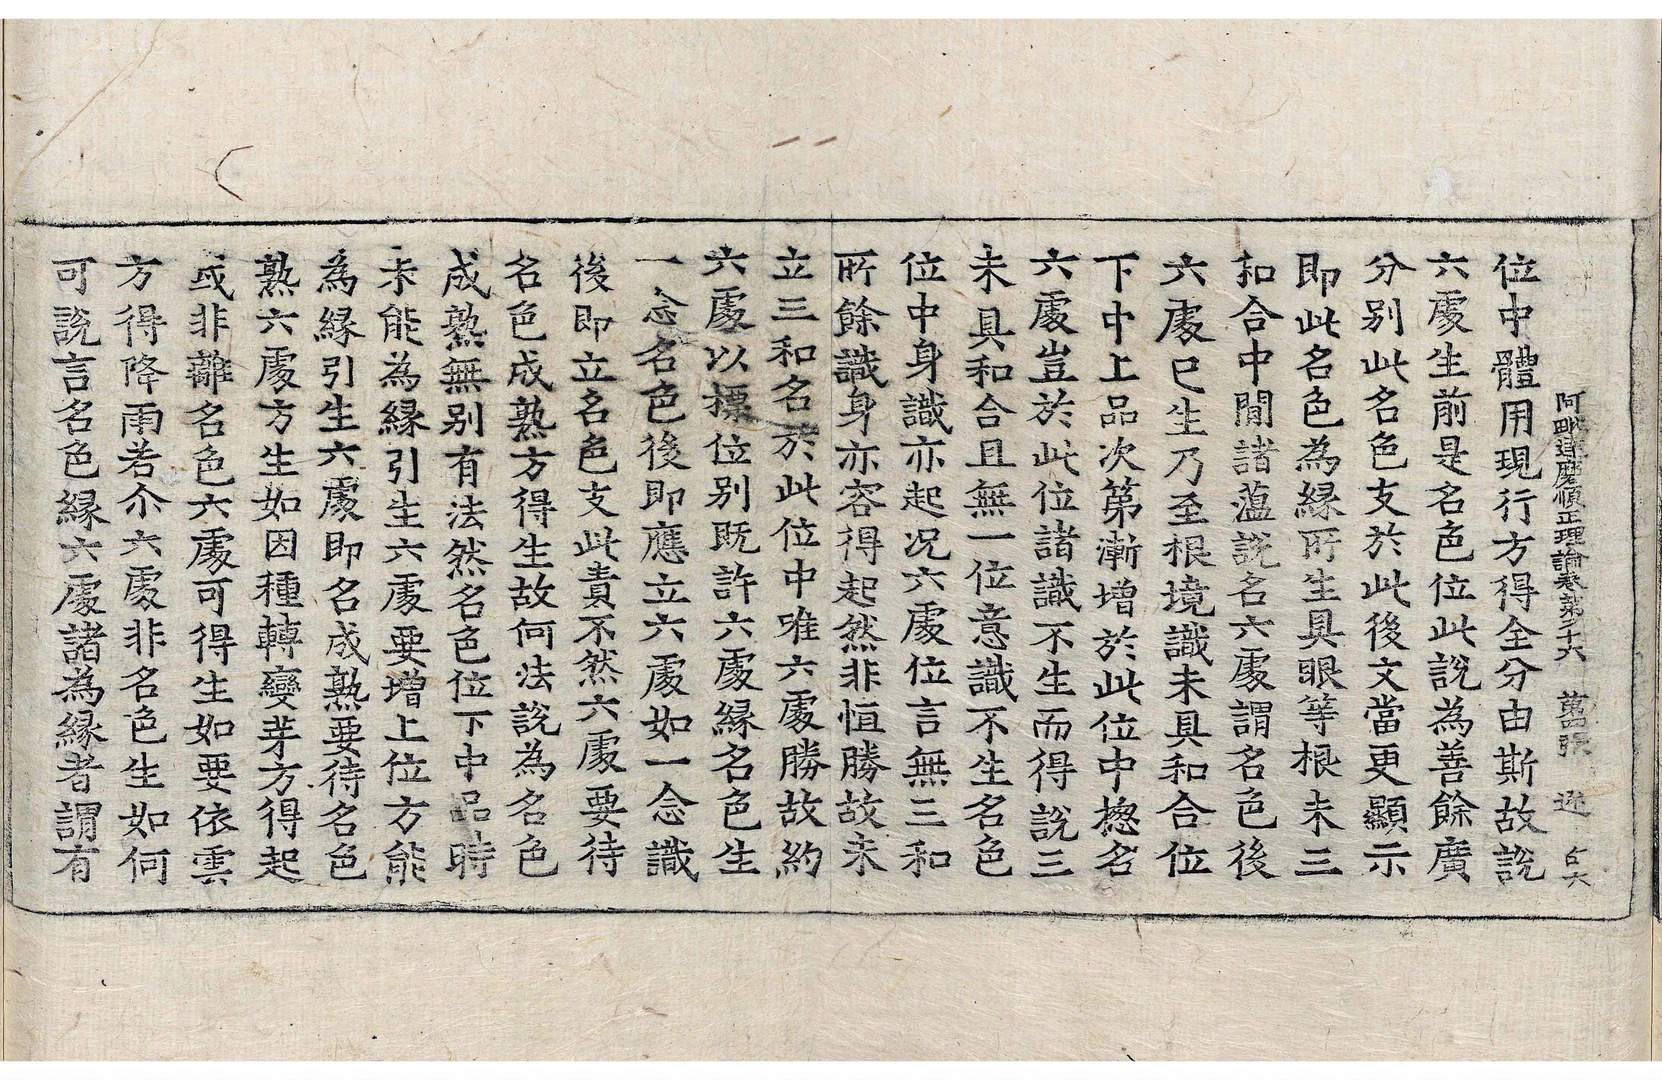 阿毗達磨順正理論卷第二十六 第四張 逐
位中體用現行方得全分由斯故說
六處生前是名色位此說為善餘廣
分別此名色支於此後文當更顯示
即此名色為緣所生具眼等根未三
和合中間諸蘊說名六處謂名色後
六處已生乃至根境識未具和合位
下中上品次第漸增於此位中揔名
六處豈於此位諸識不生而得說三
未具和合且無一位意識不生名色
位中身識亦起況六處位言無三和
所餘識身亦容得起然非恒勝故未
立三和名於此位中唯六處勝故約
六處以摽位別既許六處緣名色生
一念名色後即應立六處如一念識
後即立名色支此責不然六處要待
名色成熟方得生故何法說為名色
成熟無別有法然名色位下中品時
未能為緣引生六處要增上位方能
為緣引生六處即名成熟要待名色
熟六處方生如因種轉變芽方得起
或非離名色六處可得生如要依雲
方得降雨若尒六處非名色生如何
可說言名色緣六處諸為緣者謂有